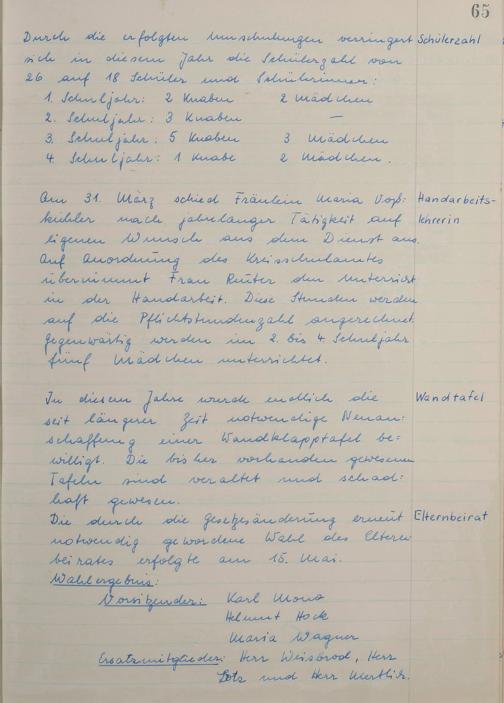 65
Durch die erfolgten Umschulungen verringert Schülerzahl
sich in diesem Jahr die Schülerzahl von
26 auf 18 Schüler und Schülerinnen:
1. Schuljahr: 2 Knaben 2 Mädchen
2. Schuljahr: 3 Knaben —
3. Schuljahr: 5 Knaben 3 Mädchen
4. Schuljahr: 1 Knabe 2 Mädchen.
Am 31. März schied Fräulein Maria Handarbeits-
nach jahrelanger Tätigkeit auf lehrerin
eigenen Wunsch aus dem Dienst aus.
Auf Anordnung des Kreisschulamtes
übernimmt Frau Reuter den Unterricht
in der Handarbeit. Diese Stunden werden
auf die Pflichtstundenzahl angerechnet.
Gegenwärtig werden im 2. bis 4. Schuljahr
fünf Mädchen unterrichtet.
In diesem Jahre wurde endlich die Wandtafel
seit längerer Zeit notwendige Neuan=
schaffung einer Wandklapptafel be=
willigt. Die bisher vorhanden gewesenen
Tafeln sind veraltet und schad=
haft gewesen.
Die durch die Gesetzesänderung erneut Elternbeirat
notwendig gewordene Wahl des Eltern
beirates erfolgte am 15. Mai.
Wahlergebnis:
Vorsitzender: Karl
Helmut Hock
Maria Wagner
Ersatzmitglieder: Herr Weisbrod, Herr
und Herr